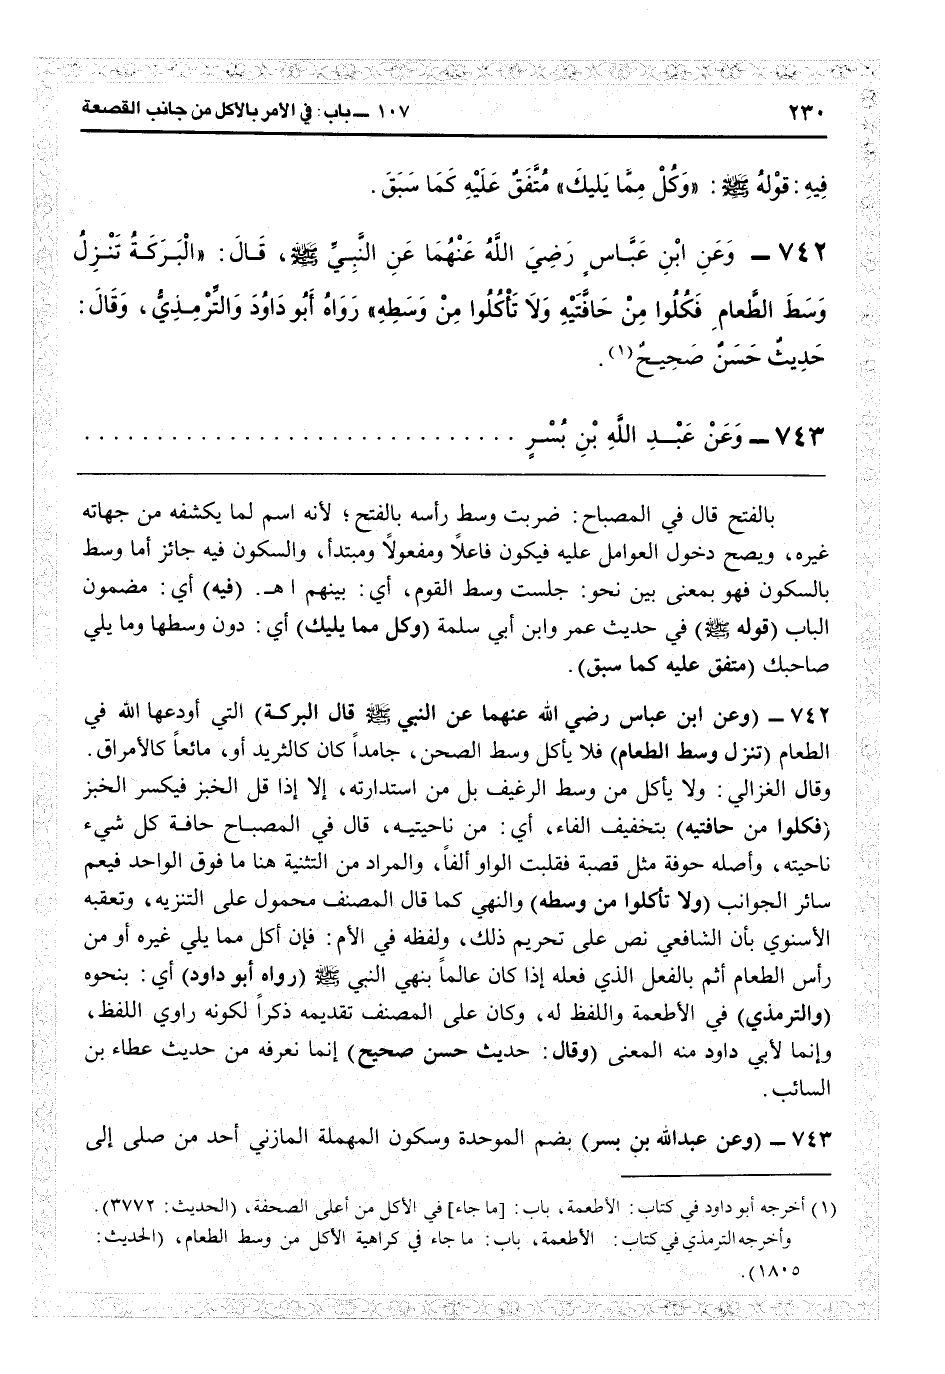 ٢٣٠ ١٠٧ ــ باب: في الأمر بالأكل من جانب القصعة
فِيهِ: قوْلهُ ﷺ: «وَكُلْ مِمَّا يَليكَ» مُتَّفَقٌ عَلَيْهِ كَمَا سَبَقَ.
٧٤٢ ــ وَعَنِ ابْنِ عَبَّاسٍ رَضِيَ اللَّهُ عَنْهُمَا عَنِ النَّبِيِّ ﷺ، قَالَ: «الْبَرَكَةُ تَنْزِلُ
وَسَطَ الطَّعامِ فَكُلُوا مِنْ حَافَّتَيْهِ وَلَا تَأْكُلُوا مِنْ وَسَطِهِ» رَوَاهُ أَبُو دَاوُدَ وَالتِّرْمِذِيُّ، وَقَالَ:
حَدِيثٌ حَسَنٌ صَحِيحٌ(١).
٧٤٣ ــ وَعَنْ عَبْدِ اللَّهِ بْنِ بُسْرٍ ..............................
بالفتح قال في المصباح: ضربت وسط رأسه بالفتح؛ لأنه اسم لما يكشفه من جهاته
غيره، ويصح دخول العوامل عليه فيكون فاعلاً ومفعولاً ومبتدأ، والسكون فيه جائز أما وسط
بالسكون فهو بمعنى بين نحو: جلست وسط القوم، أي: بينهم ا هـ. (فيه) أي: مضمون
الباب (قوله ﷺ) في حديث عمر وابن أبي سلمة (وكل مما يليك) أي: دون وسطها وما يلي
صاحبك (متفق عليه كما سبق).
٧٤٢ ــ (وعن ابن عباس رضي الله عنهما عن النبي ﷺ قال البركة) التي أودعها الله في
الطعام (تنزل وسط الطعام) فلا يأكل وسط الصحن، جامداً كان كالثريد أو، مائعاً كالأمراق.
وقال الغزالي: ولا يأكل من وسط الرغيف بل من استدارته، إلا إذا قل الخبز فيكسر الخبز
(فكلوا من حافتيه) بتخفيف الفاء، أي: من ناحيتيه، قال في المصباح حافة كل شيء
ناحيته، وأصله حوفة مثل قصبة فقلبت الواو ألفاً، والمراد من التثنية هنا ما فوق الواحد فيعم
سائر الجوانب (ولا تأكلوا من وسطه) والنهي كما قال المصنف محمول على التنزيه، وتعقبه
الأسنوي بأن الشافعي نص على تحريم ذلك، ولفظه في الأم: فإن أكل مما يلي غيره أو من
رأس الطعام أثم بالفعل الذي فعله إذا كان عالماً بنهي النبي ﷺ (رواه أبو داود) أي: بنحوه
(والترمذي) في الأطعمة واللفظ له، وكان على المصنف تقديمه ذكراً لكونه راوي اللفظ،
وإنما لأبي داود منه المعنى (وقال: حديث حسن صحيح) إنما نعرفه من حديث عطاء بن
السائب.
٧٤٣ ــ (وعن عبدالله بن بسر) بضم الموحدة وسكون المهملة المازني أحد من صلى إلى
(١) أخرجه أبو داود في كتاب: الأطعمة، باب: [ما جاء] في الأكل من أعلى الصحفة، (الحديث: ٣٧٧٢).
وأخرجه الترمذي في كتاب: الأطعمة، باب: ما جاء في كراهية الأكل من وسط الطعام، (الحديث:
١٨٠٥).